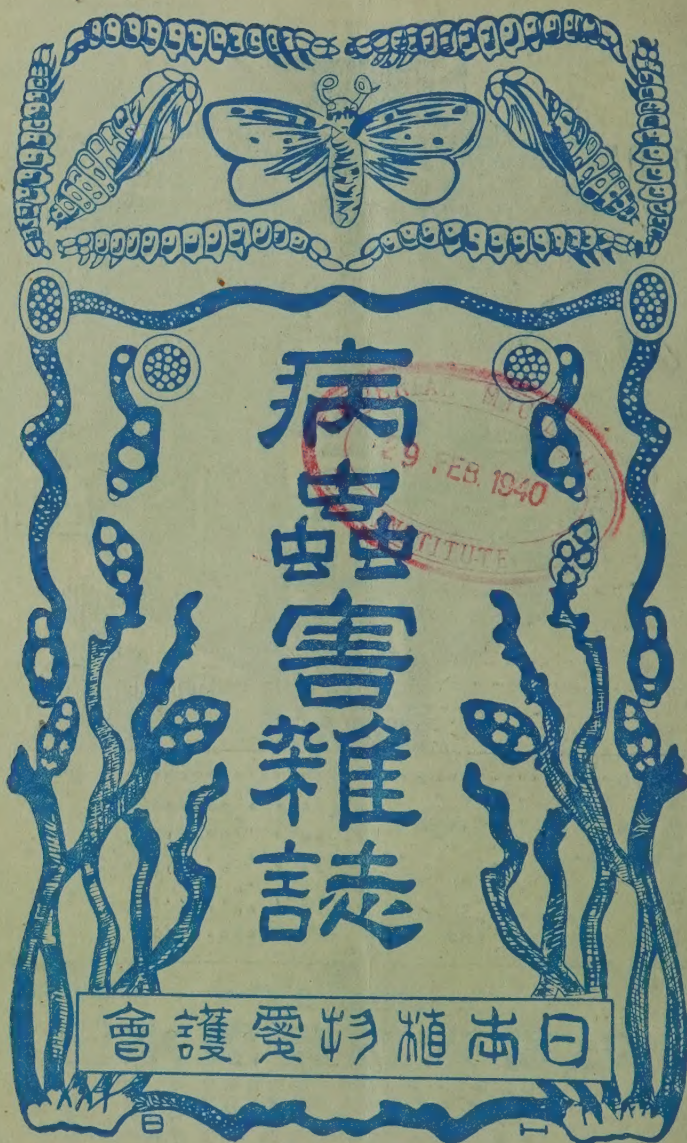 病蟲害雜誌
29 FEB 1940
INSTITUTE
日本植物愛護會